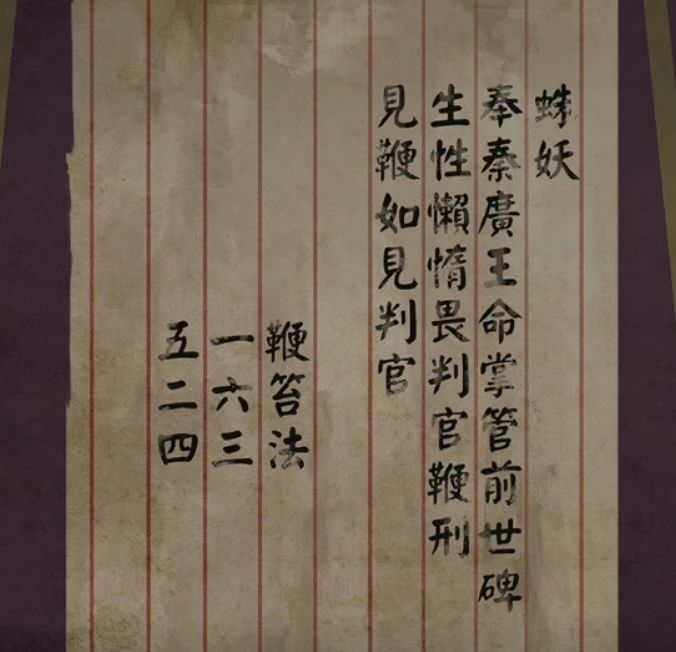 蛛妖
奉秦廣王命掌管前世碑
生性懶惰畏判官鞭刑
見鞭如見判官
鞭笞法
一六三
五二四